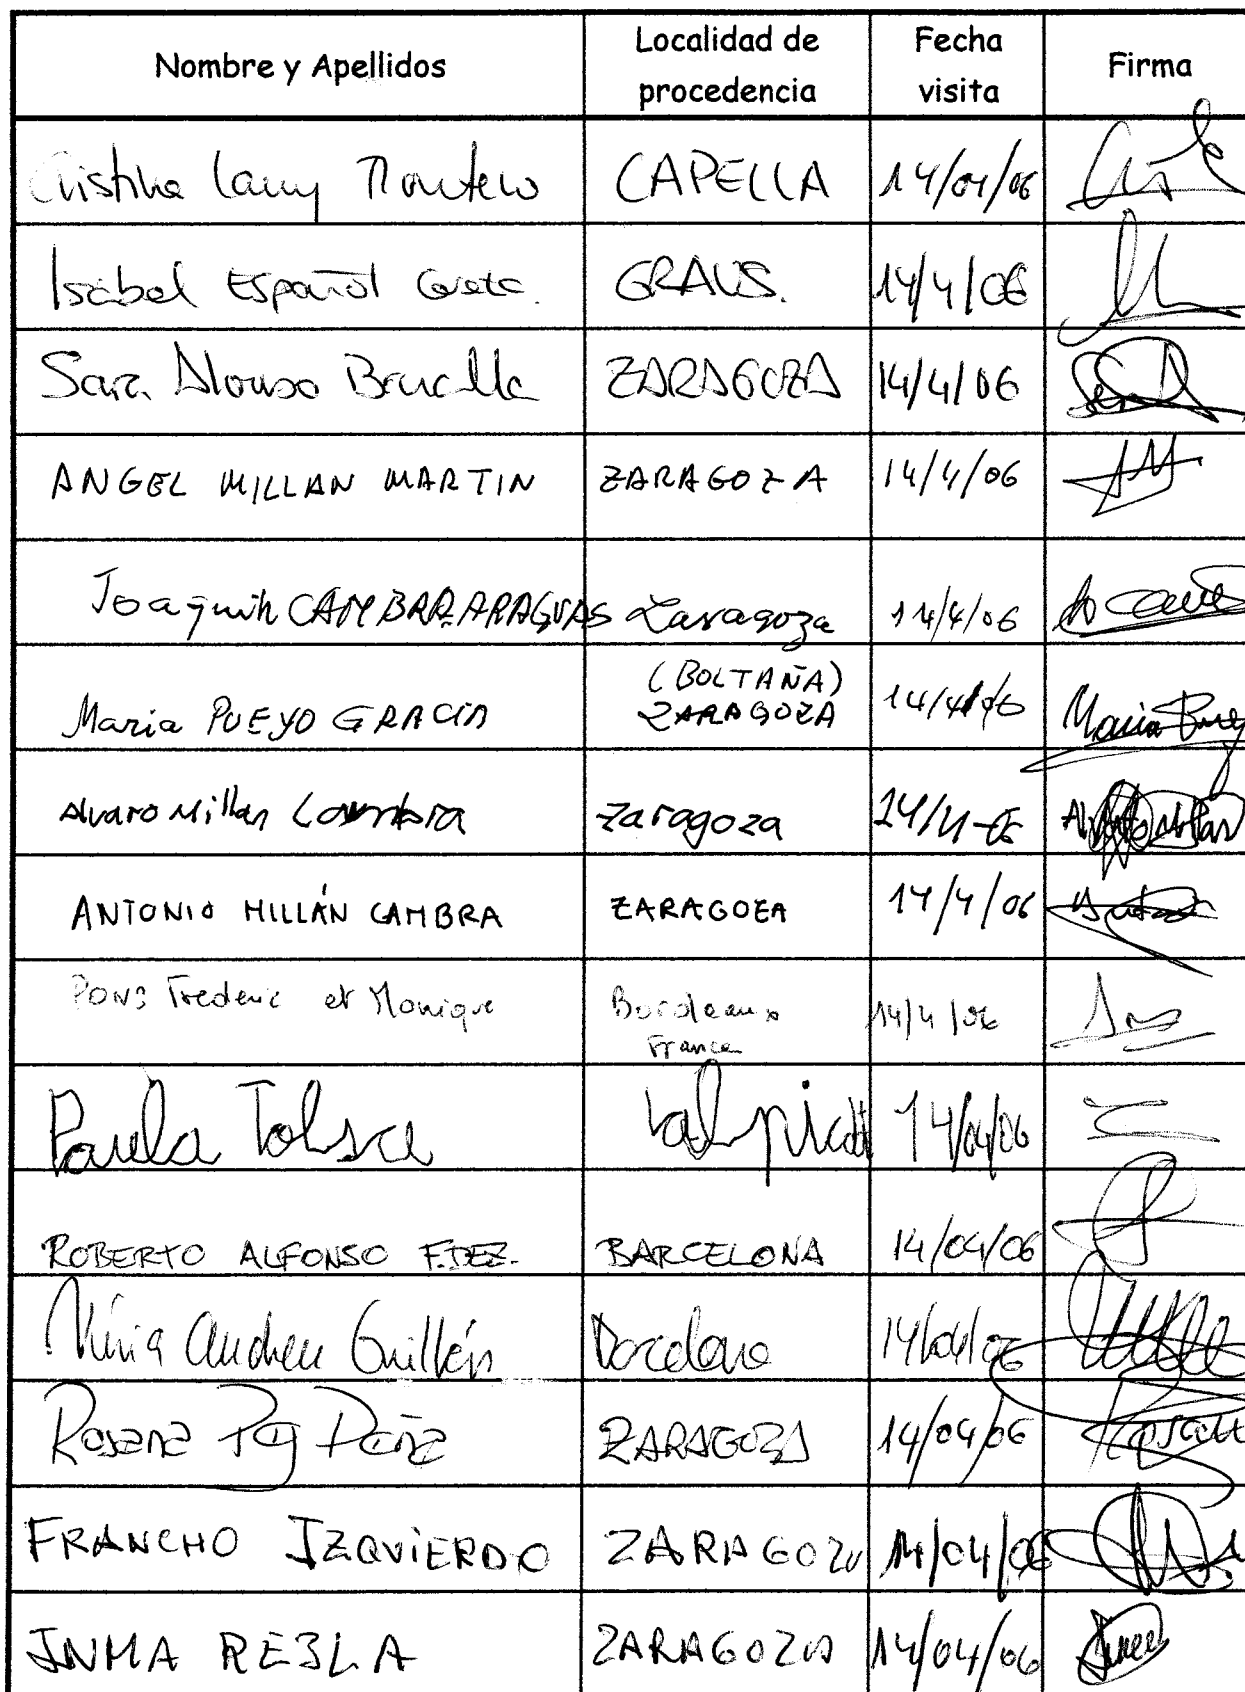 Nombre y Apellidos Localidad de procedencia Fecha visita Firma
Cristina Montero CAPELLA 14/04/06
Isabel Español GRAUS. 14/4/06
Sara Alonso ZARAGOZA 14/4/06
ANGEL MILLAN MARTIN ZARAGOZA 14/4/06
Joaquin CAMBRA ARAGUAS Zaragoza 14/4/06
Maria PUEYO GRACIA (BOLTAÑA) ZARAGOZA 14/4/06 Maria
Alvaro Millan Cambra Zaragoza 14/4-06
ANTONIO MILLÁN CAMBRA ZARAGOZA 14/4/06
PONS Frederic et Monique Bordeaux France 14/4/06
Paula Tolosa 14/04/06
ROBERTO ALFONSO F.DEZ. BARCELONA 14/04/06
Andreu Guillén Barcelona 14/04/06
ZARAGOZA 14/04/06
FRANCHO IZQUIERDO ZARAGOZA 14/04/06
INMA ZARAGOZA 14/04/06